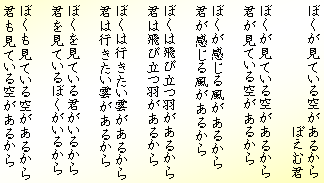 ぼくが見ている空があるから
ぽえむ君
ぼくが見ている空があるから
君が見ている空があるから
ぼくが感じる風があるから
君が感じる風があるから
ぼくは飛び立つ羽があるから
君は飛び立つ羽があるから
ぼくは行きたい雲があるから
君は行きたい雲があるから
ぼくを見ている君がいるから
君を見ているぼくがいるから
ぼくも見ている空があるから
君も見ている空があるから